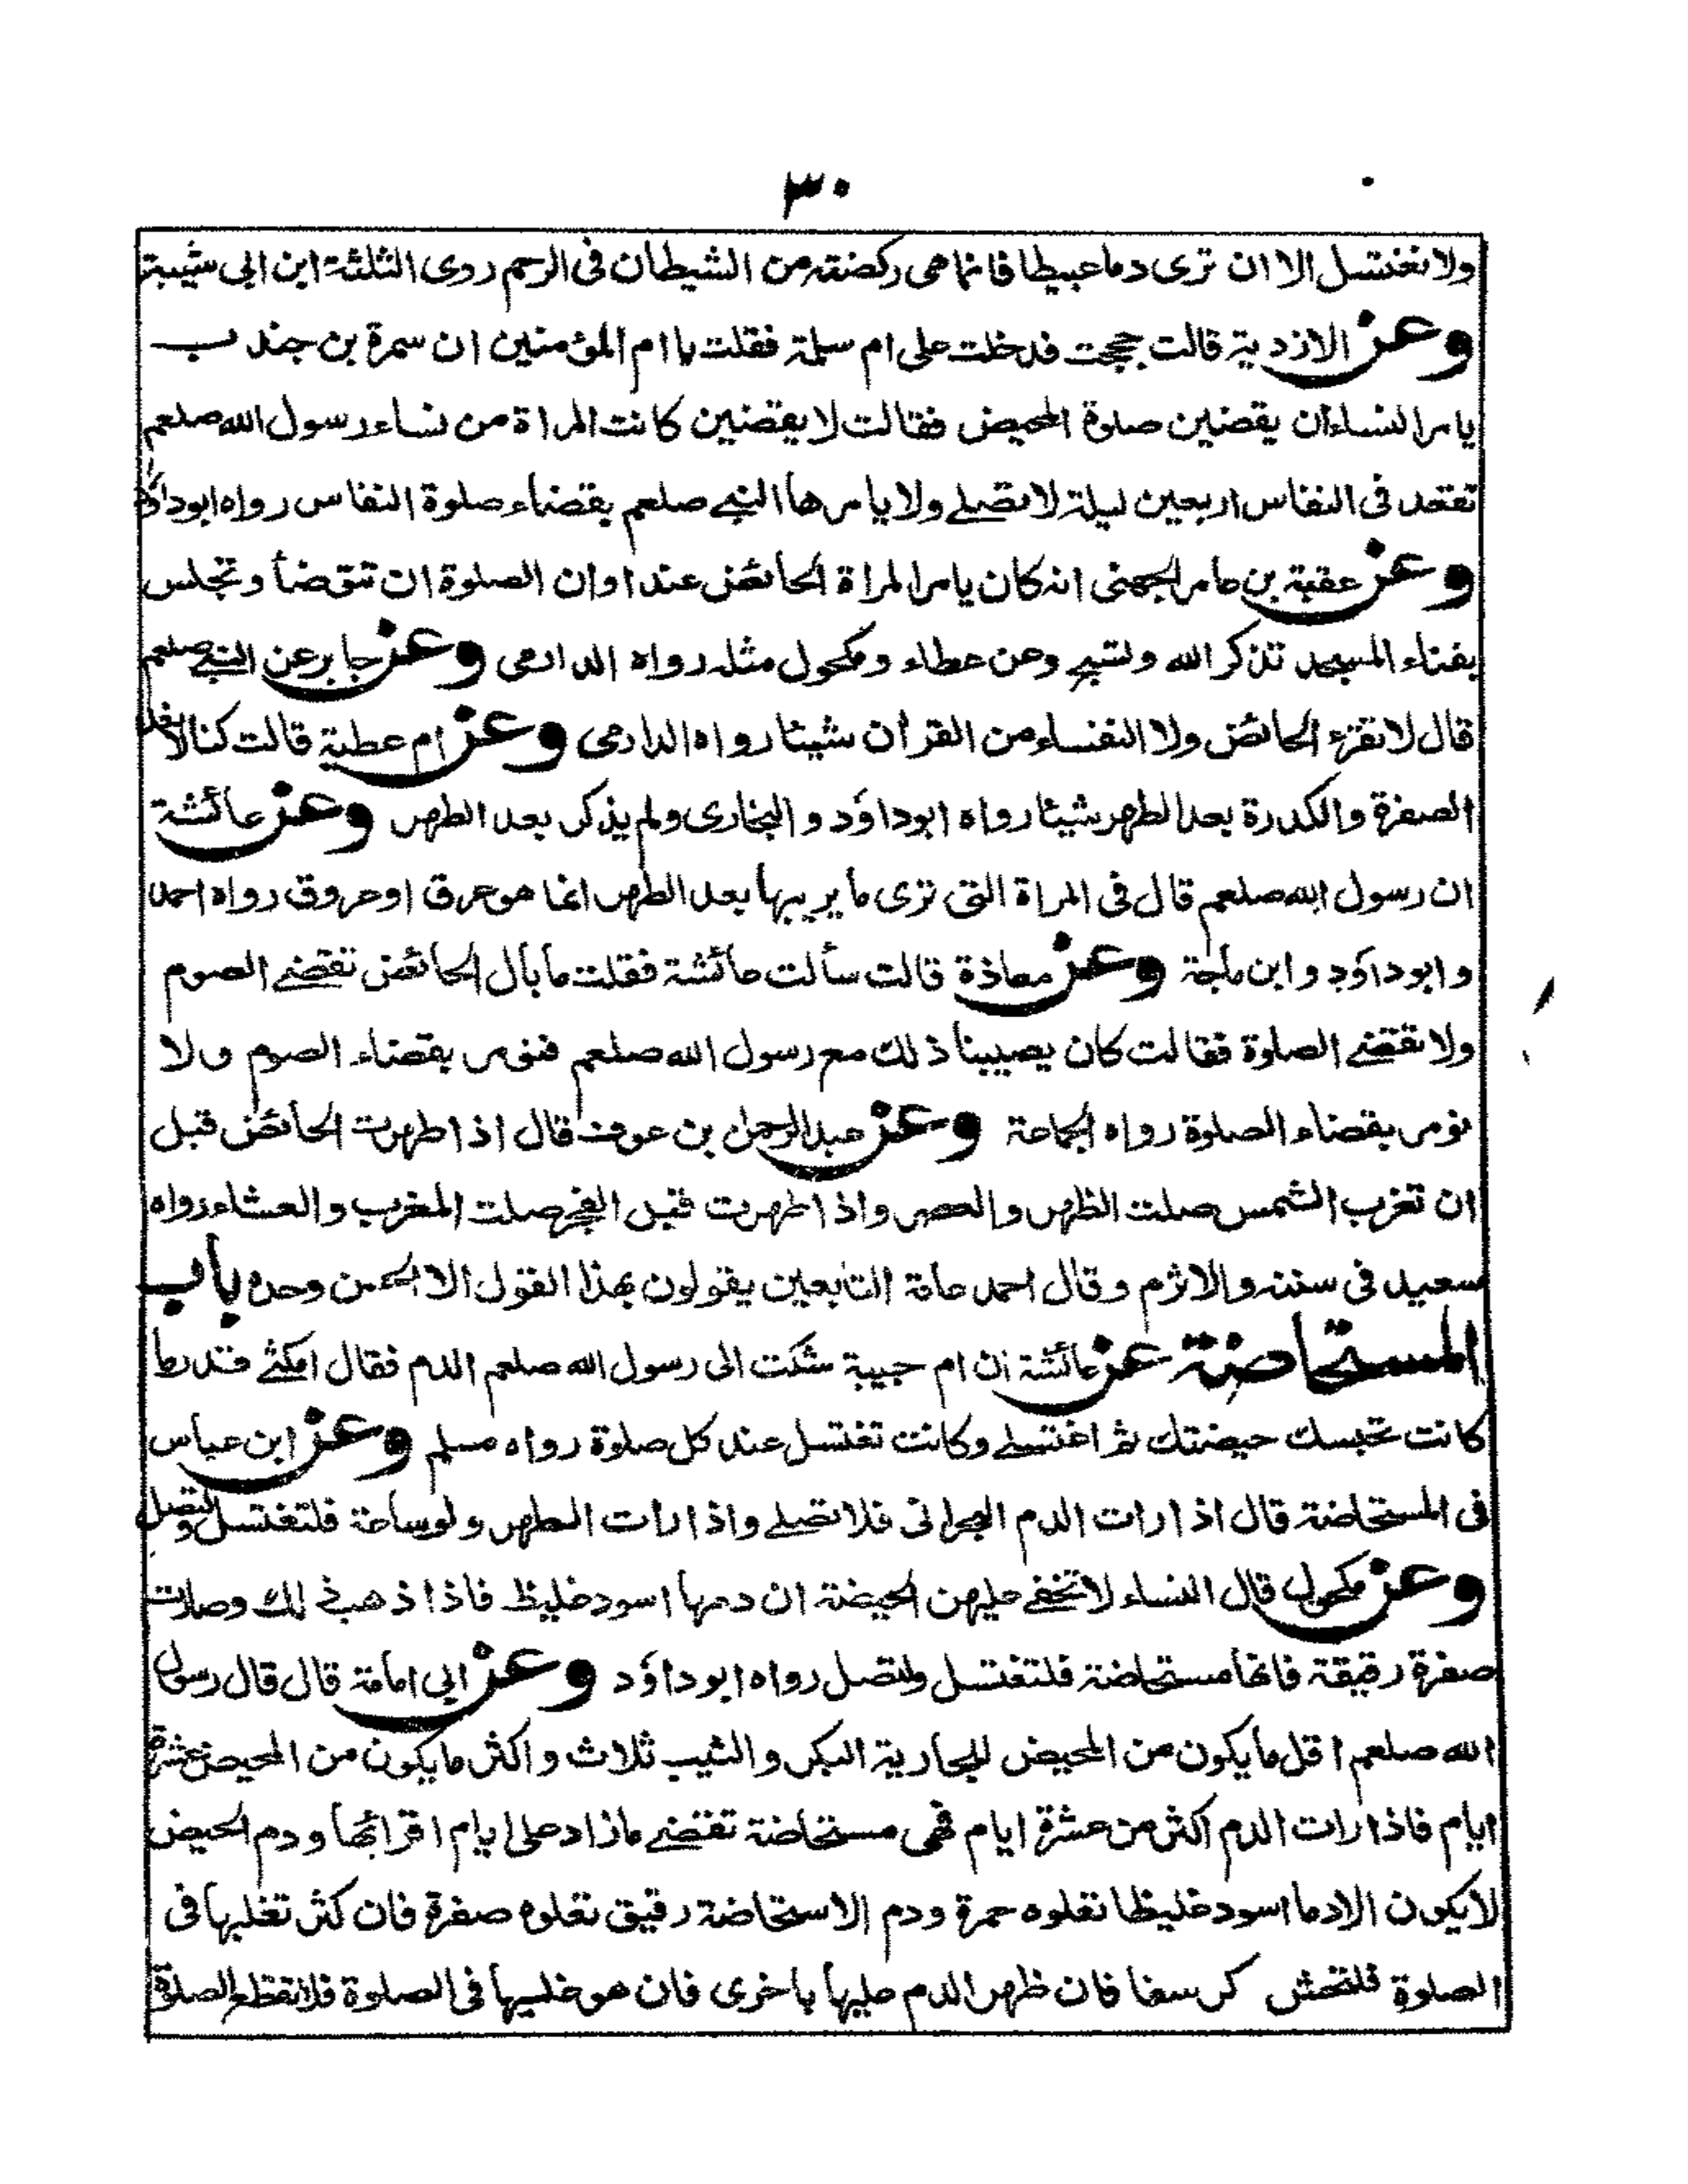 ٣٠
ولا تغتسل الا ان ترى دما عبيطا فانما هى ركضة من الشيطان فى الرحم روى الثلثة ابن ابى شيبة
وعن الازدية قالت حججت فدخلت على ام سلمة فقلت يا ام المؤمنين ان سمرة بن جندب
يامر النساء ان يقضين صلوة المحيض فقالت لا يقضين كانت المراة من نساء رسول الله صلعم
تقعد فى النفاس اربعين ليلة لا تصلے ولا يامرها النبے صلعم بقضاء صلوة النفاس رواه ابوداؤد
وعن عقبة بن عامر الجهنى انه كان يامر المراة الحائض عند اوان الصلوة ان تتوضأ وتجلس
بفناء المسجد تذكر الله وتسبح وعن عطاء ومكحول مثله رواه الدارمى وعن جابر عن النبے صلعم
قال لا تقرء الحائض ولا النفساء من القرأن شيئا رواه الدارمى وعن ام عطية قالت كنا لا نعد
الصفرة والكدرة بعد الطهر شيئا رواه ابوداؤد و البخارى ولم يذكر بعد الطهر وعن عائشة
ان رسول الله صلعم قال فى المراة التى ترى ما يريبها بعد الطهر انما هو عرق او عروق رواه احمد
و ابوداؤد و ابن ماجة وعن معاذة قالت سألت عائشة فقلت ما بال الحائض تقضے الصوم
ولا تقضے الصلوة فقالت كان يصيبنا ذلك مع رسول الله صلعم فنؤمر بقضاء الصوم ولا
نؤمر بقضاء الصلوة رواه الجماعة وعن عبد الرحمن بن عوف قال اذا طهرت الحائض قبل
ان تغرب الشمس صلت الظهر و العصر واذا طهرت قبل الفجر صلت المغرب و العشاء رواه
سعيد فى سننه والاثرم وقال احمد عامة التابعين يقولون بهذا القول الا الحسن وحده باب
المستحاضة عن عائشة ان ام حبيبة شكت الى رسول الله صلعم الدم فقال امكثے قدر ما
كانت تحبسك حيضتك ثم اغتسلے وكانت تغتسل عند كل صلوة رواه مسلم وعن ابن عباس
فى المستحاضة قال اذا رات الدم البحرانى فلا تصلے واذا رات الطهر ولو ساعة فلتغتسل وتصل
وعن مكحول قال النساء لا تخفے عليهن الحيضة ان دمها اسود غليظ فاذا ذهب ذلك وصارت
صفرة رقيقة فانها مستحاضة فلتغتسل ولتصل رواه ابوداؤد وعن ابى امامة قال قال رسول
الله صلعم اقل ما يكون من المحيض للجارية البكر و الثيب ثلاث و اكثر ما يكون من المحيض عشرة
ايام فاذا رات الدم اكثر من عشرة ايام فهى مستحاضة تقضے ما زاد على ايام اقرائها ودم الحيض
لا يكون الا دما اسود غليظا تعلوه حمرة ودم الاستحاضة رقيق تعلوه صفرة فان كثر تغلبها فى
الصلوة فلتحتش كرسفا فان ظهر الدم عليها باخرى فان هو غلبها فى الصلوة فلا تقطع الصلوة